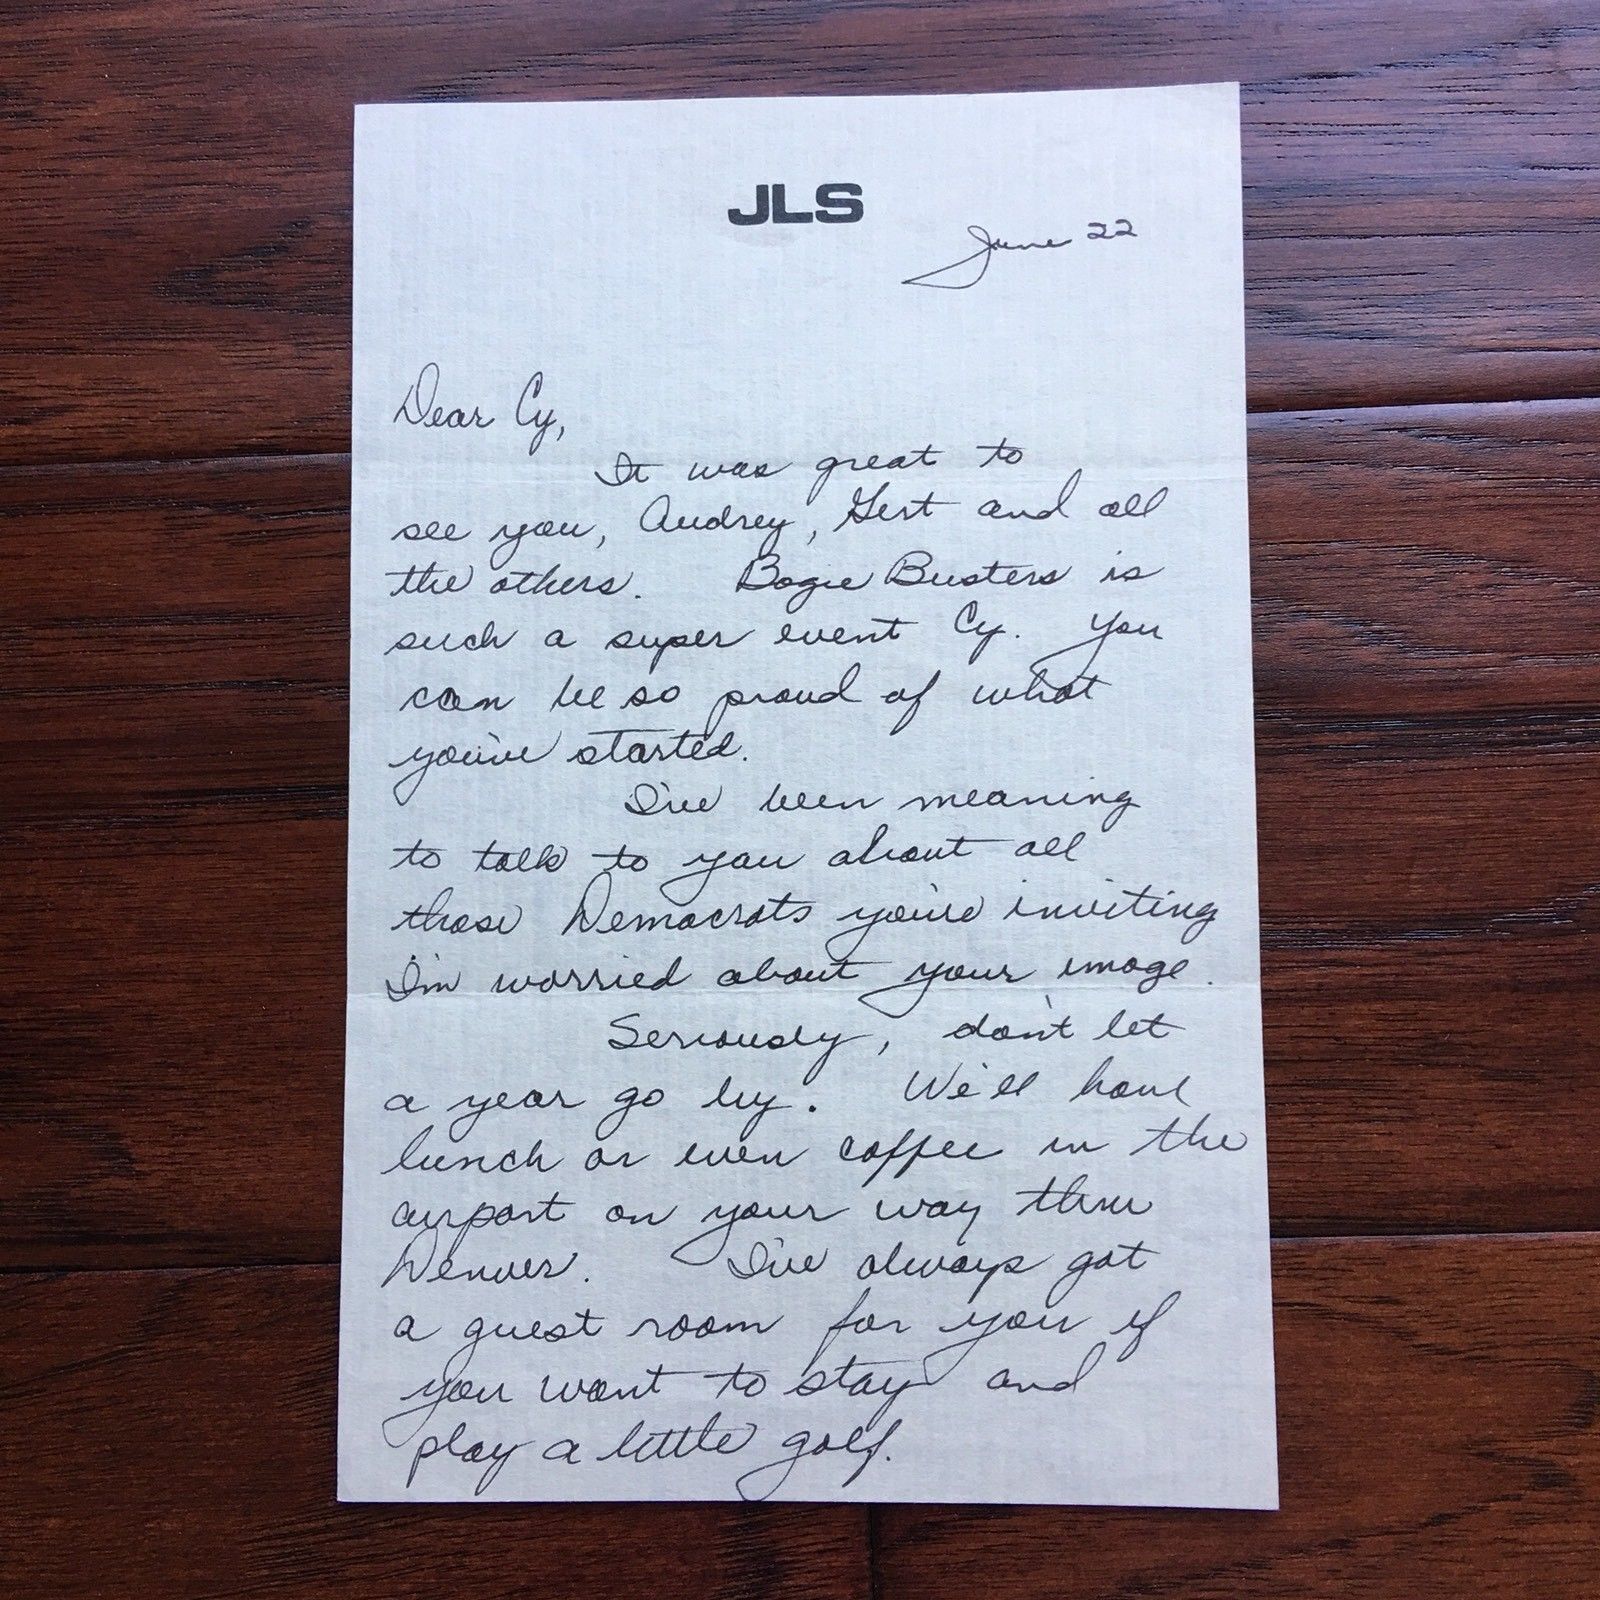 JLS
June 22
Dear Cy,
It was great to
see you, Audrey, Gert and all
the others. Bogie Busters is
such a super event Cy. You
can be so proud of what
you've started.
I've been meaning
to talk to you about all
those Democrats you're inviting
I'm worried about your image.
Seriously, don't let
a year go by. We'll have
lunch or even coffee in the
airport on your way thru
Denver. I've always got
a guest room for you if
you want to stay and
play a little golf.